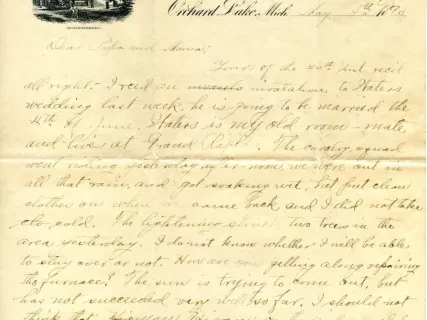 Orchard Lake, Mich. May 5th 18
Dear Papa and Mama:
Yours of the inst. rec'd
all right. I rec'd an invatation to Haters
wedding last week, he is going to be married the
4th of June. Haters is my old room-mate
and lives at Grand. The cavalry squad
went riding yesterday after noon, we were out in
all that rain, and got soaking wet, but put clean
clothes on when we came back and I did not take
cold. The lightening struck two trees in the
area yesterday. I do not know whether I will be able
to stay over or not. How are you getting along repairing
the furnace? The sun is trying to come out, but
has not succeeded very well so far. I should not
think that